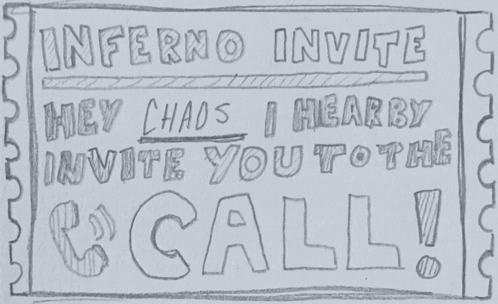 INFERNO INVITE
HEY CHAOS I HEARBY
INVITE YOU TO THE
CALL!